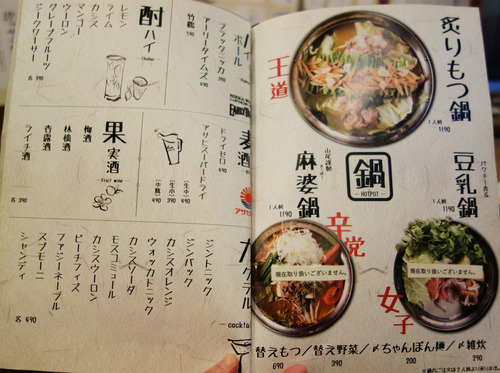 炙りもつ鍋
1人前
1190
王道
鍋
HOTPOT
豆乳鍋
パクチー香る
1人前
1190
山尾謹製
麻婆鍋
1人前
1190
辛党
女子
現在取り扱いございません。
現在取り扱いございません。
替えもつ／替え野菜／〆ちゃんぽん麺／〆雑炊
690
390
200
290
ハイボール
ブラックニッカ
アーリータイムズ
490
竹鶴
190
酎ハイ
Chuhai
レモン
ライム
カシス
マンゴー
グレープフルーツ
ジークワーサー
各 390
麦酒
ドライゼロ
アサヒスーパードライ
(生中)
390
(生小)
(中瓶)
490
アサヒ
果実酒
Fruit wine
梅酒
林檎酒
杏露酒
ライチ酒
各 390
カクテル
cocktail
ジントニック
ジンバック
カシスオレンジ
ウォッカトニック
カシスソーダ
モスコミュール
カシスウーロン
ピーチフィズ
ファジーネーブル
スプモーニ
シャンディ
各 490